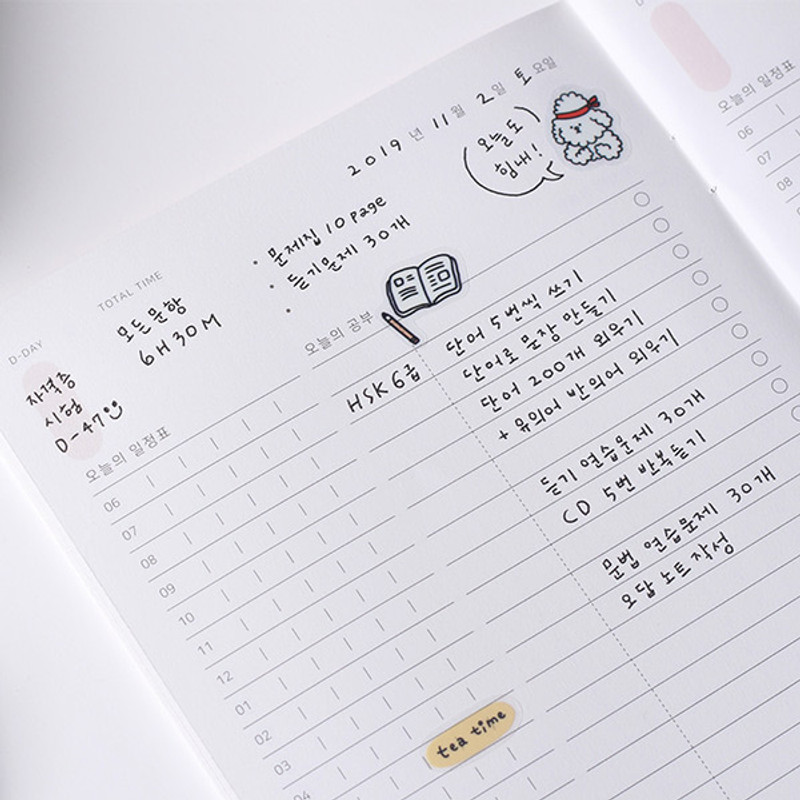 2019 년 11 월 2 일 토 요일
오늘도
힘내!
• 문제집 10 page
• 듣기문제 30개
•
D-DAY
자격증
시험
D-47
TOTAL TIME
모든문항
6H 30M
오늘의 공부
HSK 6급
단어 5번씩 쓰기
단어로 문장 만들기
단어 200개 외우기
+ 유의어 반의어 외우기
듣기 연습문제 30개
CD 5번 반복듣기
문법 연습문제 30개
오답 노트 작성
오늘의 일정표
06
07
08
09
10
11
12
01
02
03
04
tea time
오늘의 일정표
06
07
08